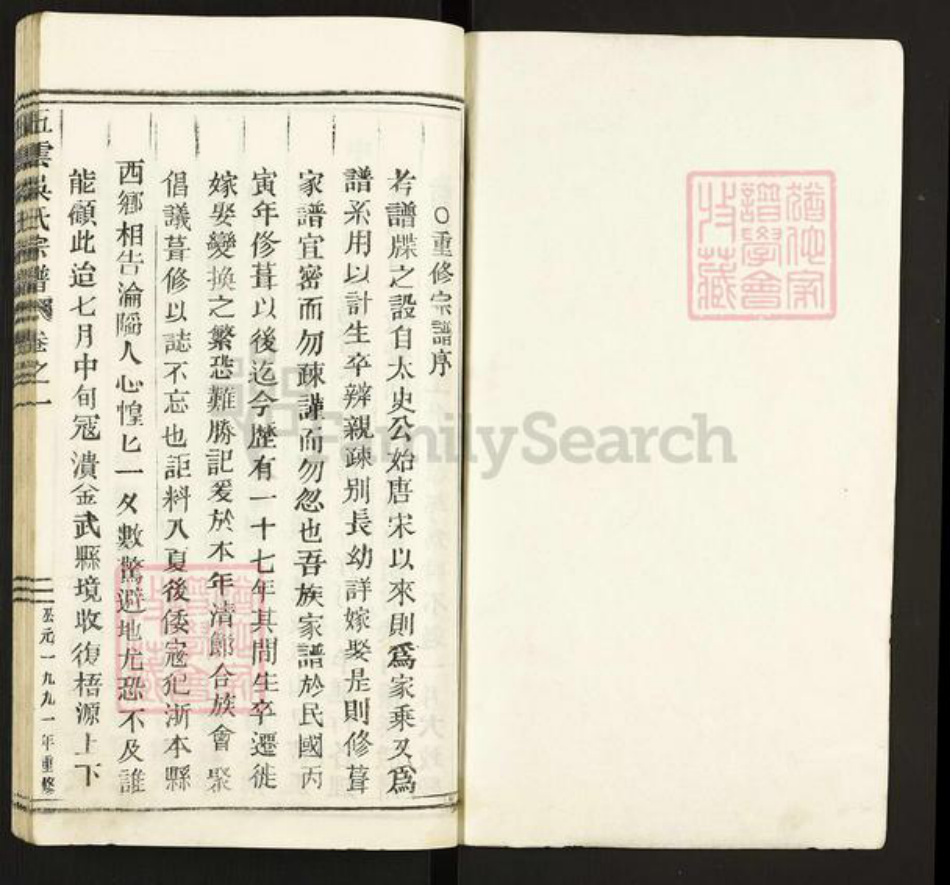 ○重修宗譜序
考譜牒之設自太史公始唐宋以來則爲家乘又爲
譜系用以計生卒辨親疎别長幼詳嫁娶是則修葺
家譜宜密而勿疎謹而勿忽也吾族家譜於民國丙
寅年修葺以後迄今歷有一十七年其間生卒遷徙
嫁娶變换之繁恐難勝記爰於本年清節合族會聚
倡議葺修以誌不忘也詎料入夏後倭寇犯浙本縣
西鄉相告淪陷人心惶匕一夕數驚避地尤恐不及誰
能顧此迨七月中旬冦潰金武縣境收復梧源上下
五雲吳氏宗譜 卷之一
公元一九九一年重修
猶他家
譜學會
收藏
猶他家
譜學會
收藏
FamilySearch